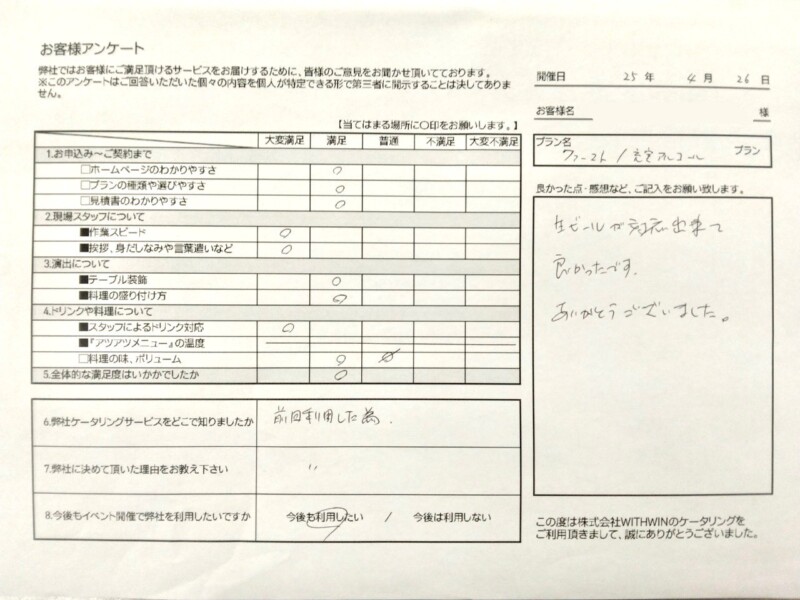 お客様アンケート
弊社ではお客様にご満足頂けるサービスをお届けするために、皆様のご意見をお聞かせ頂いてております。
※このアンケートはご回答いただいた個々の内容を個人が特定できる形で第三者に開示することは決してありま
せん。
開催日 25 年 4 月 26 日
お客様名 様
プラン名
ファースト / 充実アルコール プラン
【当てはまる場所に〇印をお願いします。】
大変満足 満足 普通 不満足 大変不満足
1.お申込み～ご契約まで
□ホームページのわかりやすさ ○
□プランの種類や選びやすさ ○
□見積書のわかりやすさ ○
2.現場スタッフについて
■作業スピード ○
■挨拶、身だしなみや言葉遣いなど ○
3.演出について
■テーブル装飾 ○
■料理の盛り付け方 ○
4.ドリンクや料理について
■スタッフによるドリンク対応 ○
■『アツアツメニュー』の温度
□料理の味、ボリューム ○
5.全体的な満足度はいかがでしたか ○
6.弊社ケータリングサービスをどこで知りましたか 前回利用した為.
7.弊社に決めて頂いた理由をお教え下さい 〃
8.今後もイベント開催で弊社を利用したいですか 今後も利用したい / 今後は利用しない
良かった点・感想など、ご記入をお願い致します。
生ビールが対応出来て
良かったです.
ありがとうございました。
この度は株式会社WITHWINのケータリングを
ご利用頂きまして、誠にありがとうございました。